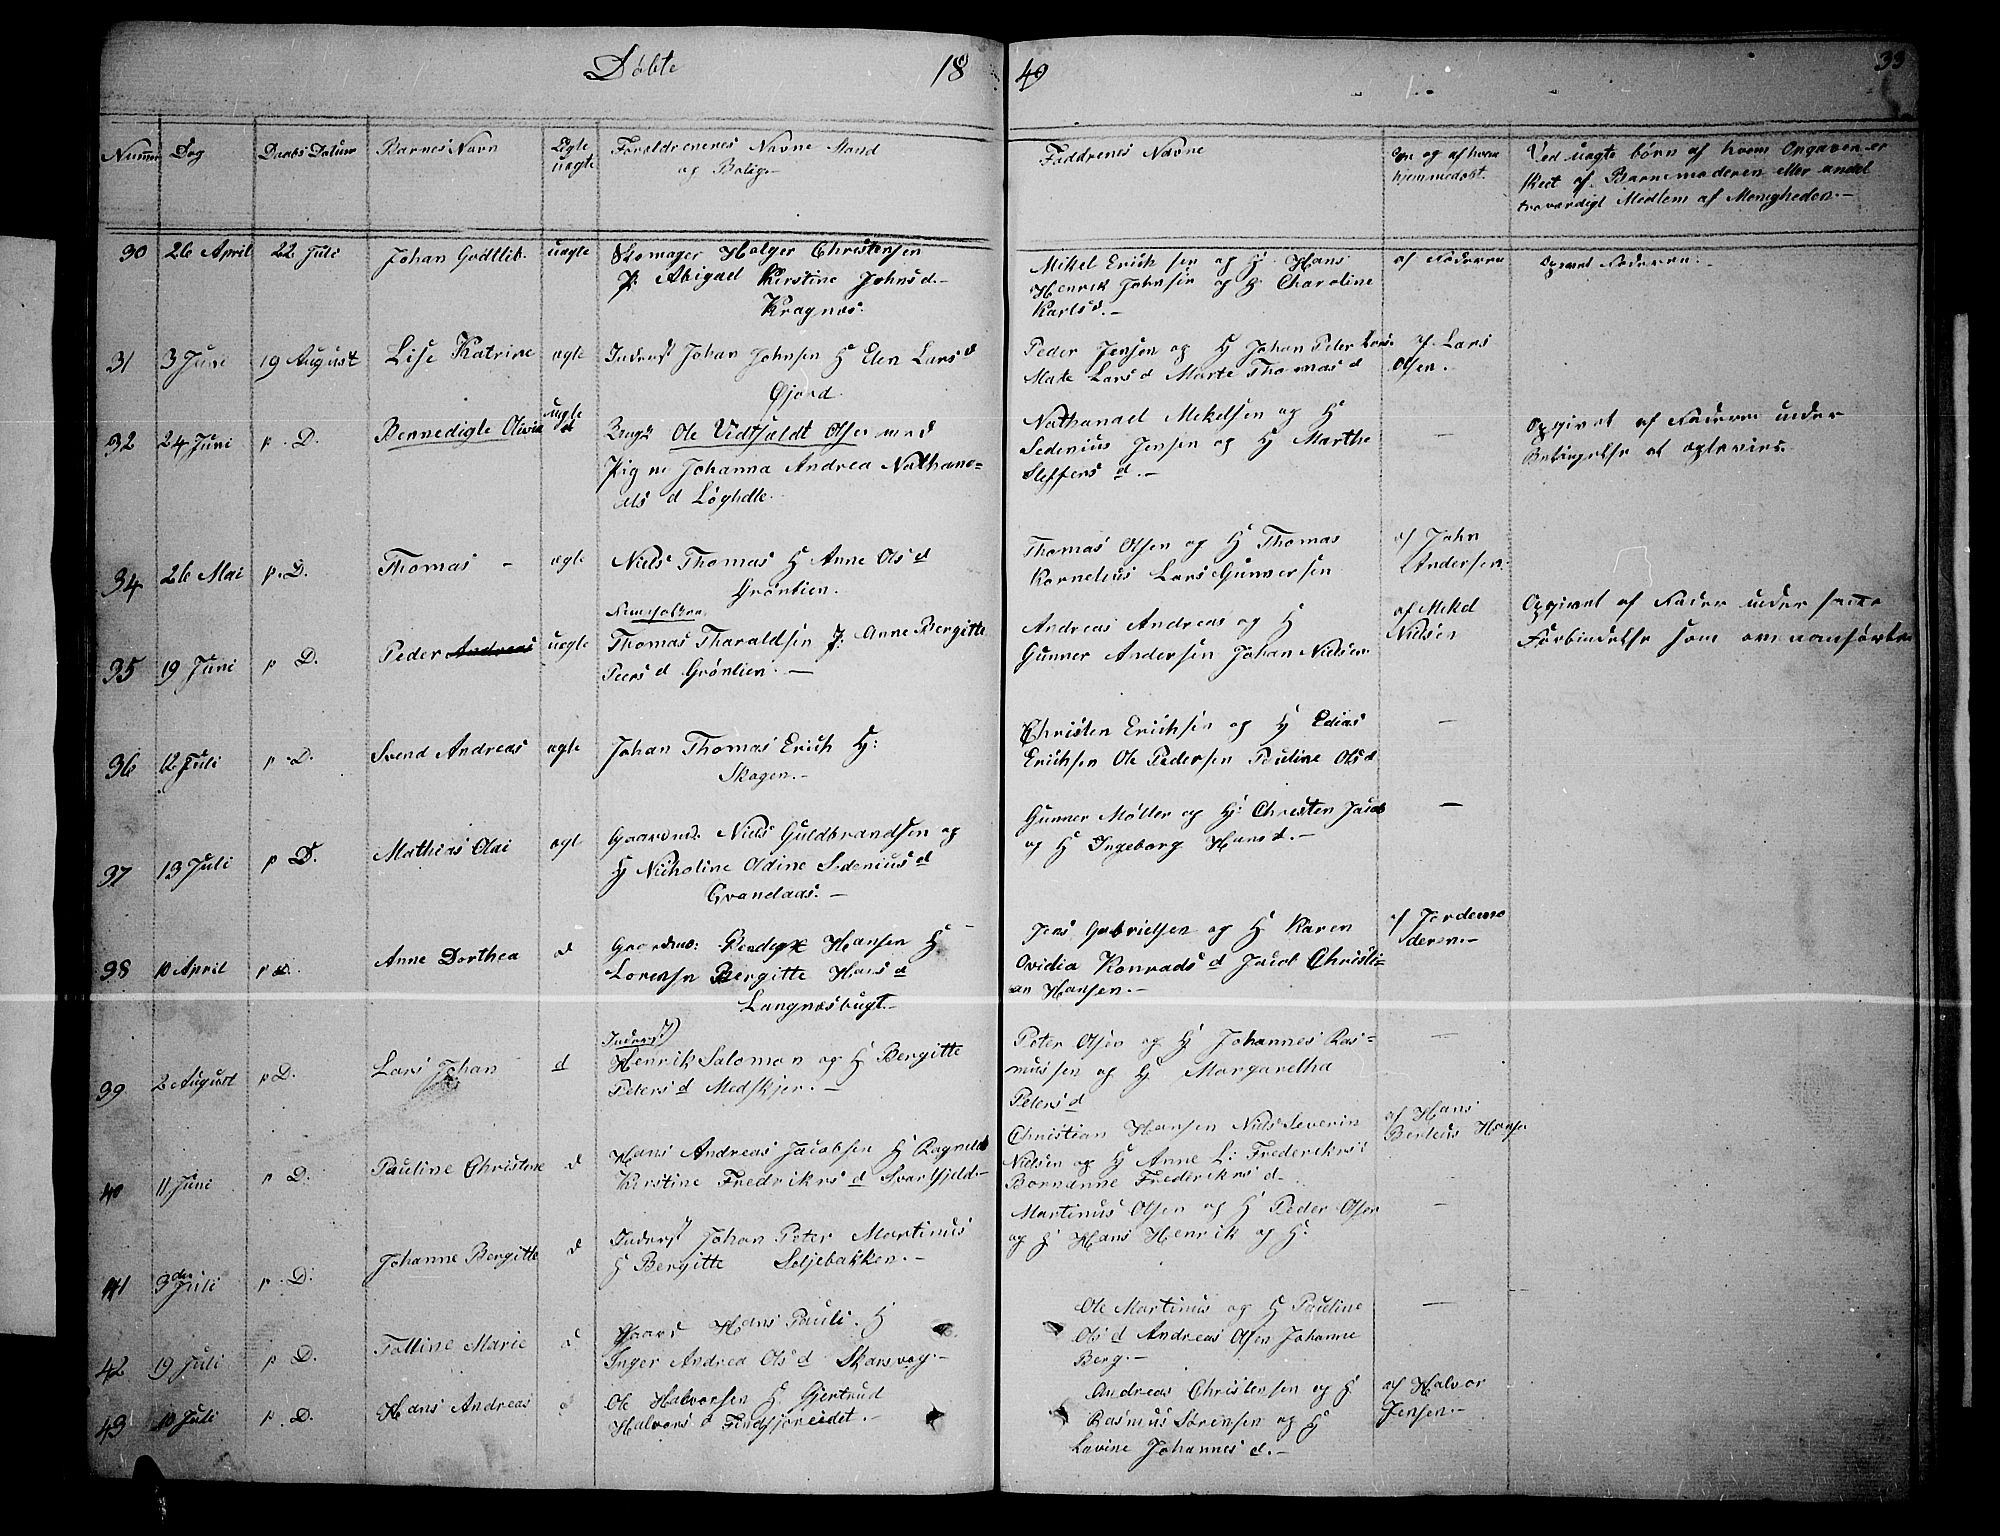 Døbte 18 49 33
Nummer Dag Daabs Datum Barnes Navn Ægte uægte Forældrenenes Navne Stand og Bolig Faddrenes Navne Om og af hvem hjemmedøbt. Ved uægte børn af hvem Opgaven er
skeet af Barnemoderen eller andet
troværdigt Medlem af Menigheden.-
30 26 April 22 Juli Johan Godtlib. uægte Skomager Holger Christensen
P: Abigael Kirstine Johnsd.-
Kragnæs.
Mikel Erichsen og H. Hans
Henrik Johnsen og H. Charoline
Karlsd.-
af Faderen
Opgivet Faderen.
31 3 Juni 19 August Lise Katrine ægte Inderst Johan Johnsen H Elen Larsd
Øjord.
Peder Jensen og H Johan Peter Lars.
Mate Larsd Marte Thomasd
J. Lars
Olsen.
32 24 Juni p. D. Bennedigte Olivia uægte
d
Ole Vidtfeldt Olsen med
Pigene Johanna Andrea Nathana-
els d Løghdle.
Nathanael Mekelsen og H
Sedenius Jensen og H Marthe
Steffens d.-
-
Opgivet af Faderen under
Betingelse at ægtevies.
34 26 Mai p. D. Thomas - ægte Niels Thomas H Anne Olsd
Grøntien.
Thomas Olsen og H Thomas
Kornelius Lars Gunnersen
af John
Andersen.
35 19 Juni p D. Peder Andreas uægte
Thomas Tharaldsen P: Anne Bergitte
Peersd Grøntien.-
Andreas Andreas og H
Gunner Andersen Johan Nielsen
af Mikel
Nielsen
Opgivet af Fader under samme
Forbindelse som ovenanførte
36 12 Juli p. D. Svend Andreas ægte Johan Thomas Erich H:
Skogen.-
Christen Erichsen og H Edias
Erichsen Ole Pedersen Pauline Olsd
-
37 13 Juli p D. Mathias Olai ægt Gaardmd. Niels Guldbrandsen og
H Nicholine Oldine Sedeniusd
Gvandaas.-
Gunner Møller og H: Christen Jacob
og H Ingeborg Hansd.-
-
38 10 April p d. Anne Dorthea d Gaardms: Hansen H
Lorense Bergitte Hansd
Langnæsbugt.-
Jens Gabrielsen og H Karen
Ovidia Konradsd Jacob Christi-
an Hansen.-
af Jordemo
deren.-
39 2 August p D. Lars Johan d Inderst
Henrik Salomon og H Bergitte
Petersd Medskjer.-
Peter Olsen og H Johannes Ras-
mussen og H Margaretha
Petersd
-
40 11 Juni p D. Pauline Christine d Hans Andreas Jacobsen H Ragnild
Kirstine Fredrikrsd Svartfjeld-
Christian Hansen Niels Severin
Nielsen og H Anne L: Frederikrs:
Bornanne Frederikrsd-
af Hans
Berteus Hanse
41 3die Juli p. D. Johanne Bergitte d Inderst Johan Peter Martinus
H Bergitte Seljebakken.-
Martinus Olsen og H Peder Olsen
og H Hans Henrik og H.
-
42 19 Juli p D. Tolline Marie d Gaard Hans Pauli. H
Inger Andrea Olsd Skarsvag.-
Ole Martinus og H Pauline
Olsd Andreas Olsen Johanne
Berg.-
-
43 10 Juli p. D. Hans Andreas d Ole Halvorsen H Gjertrud
Halvorsd Findfjoreidet.-
Andreas Christensen og H
Rasmus Sørensen og H
Lavine Johannesd.-
af Halvor
Jensen.-